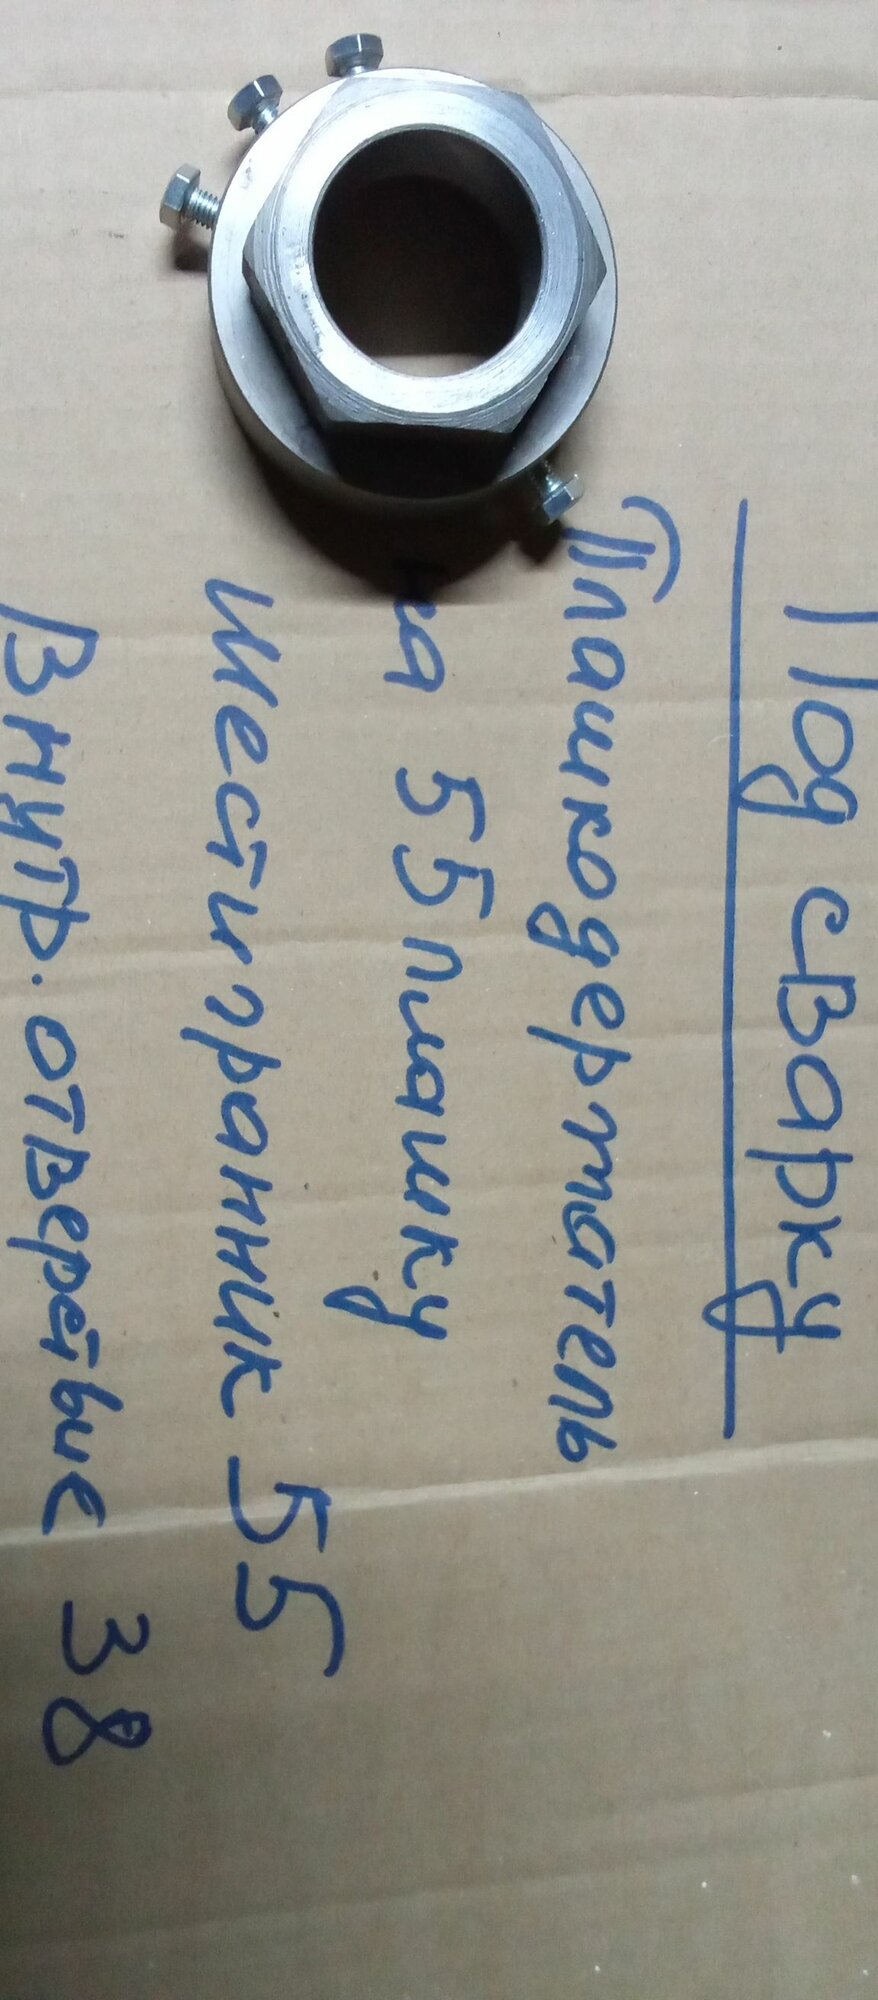 Под сварку
Плашкодержатель
на 55 плашку
Шестигранник 55
Внутр. отверстие 38